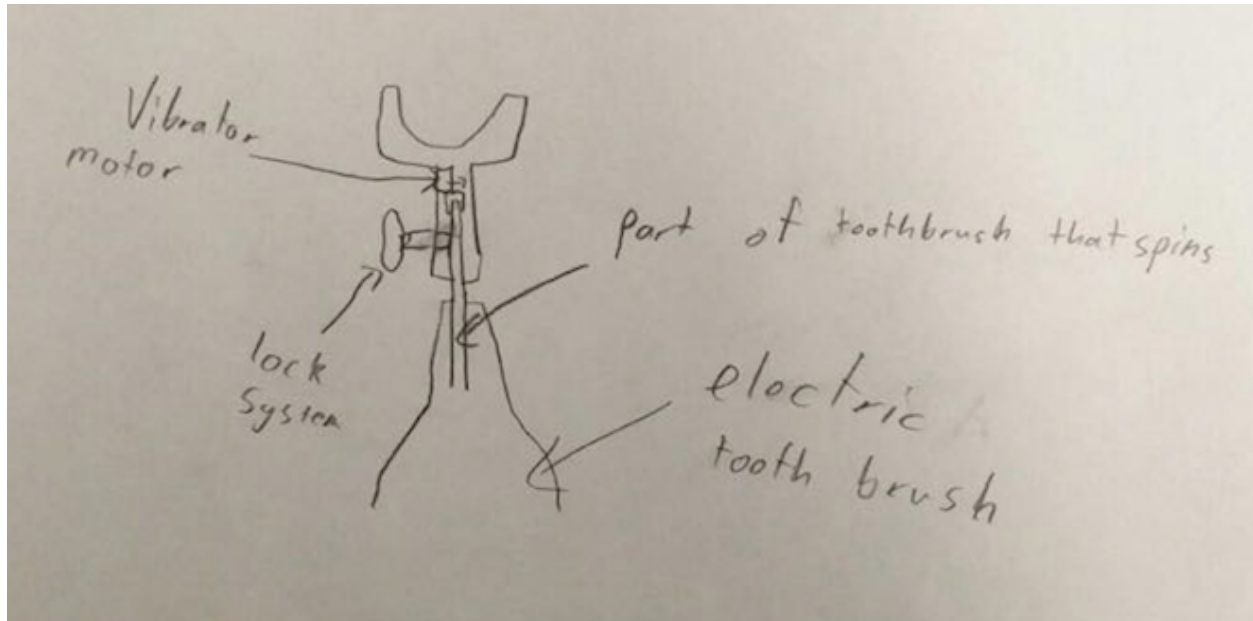 Vibrator
motor
part of toothbrush that spins
lock
system
eloctric
tooth brush